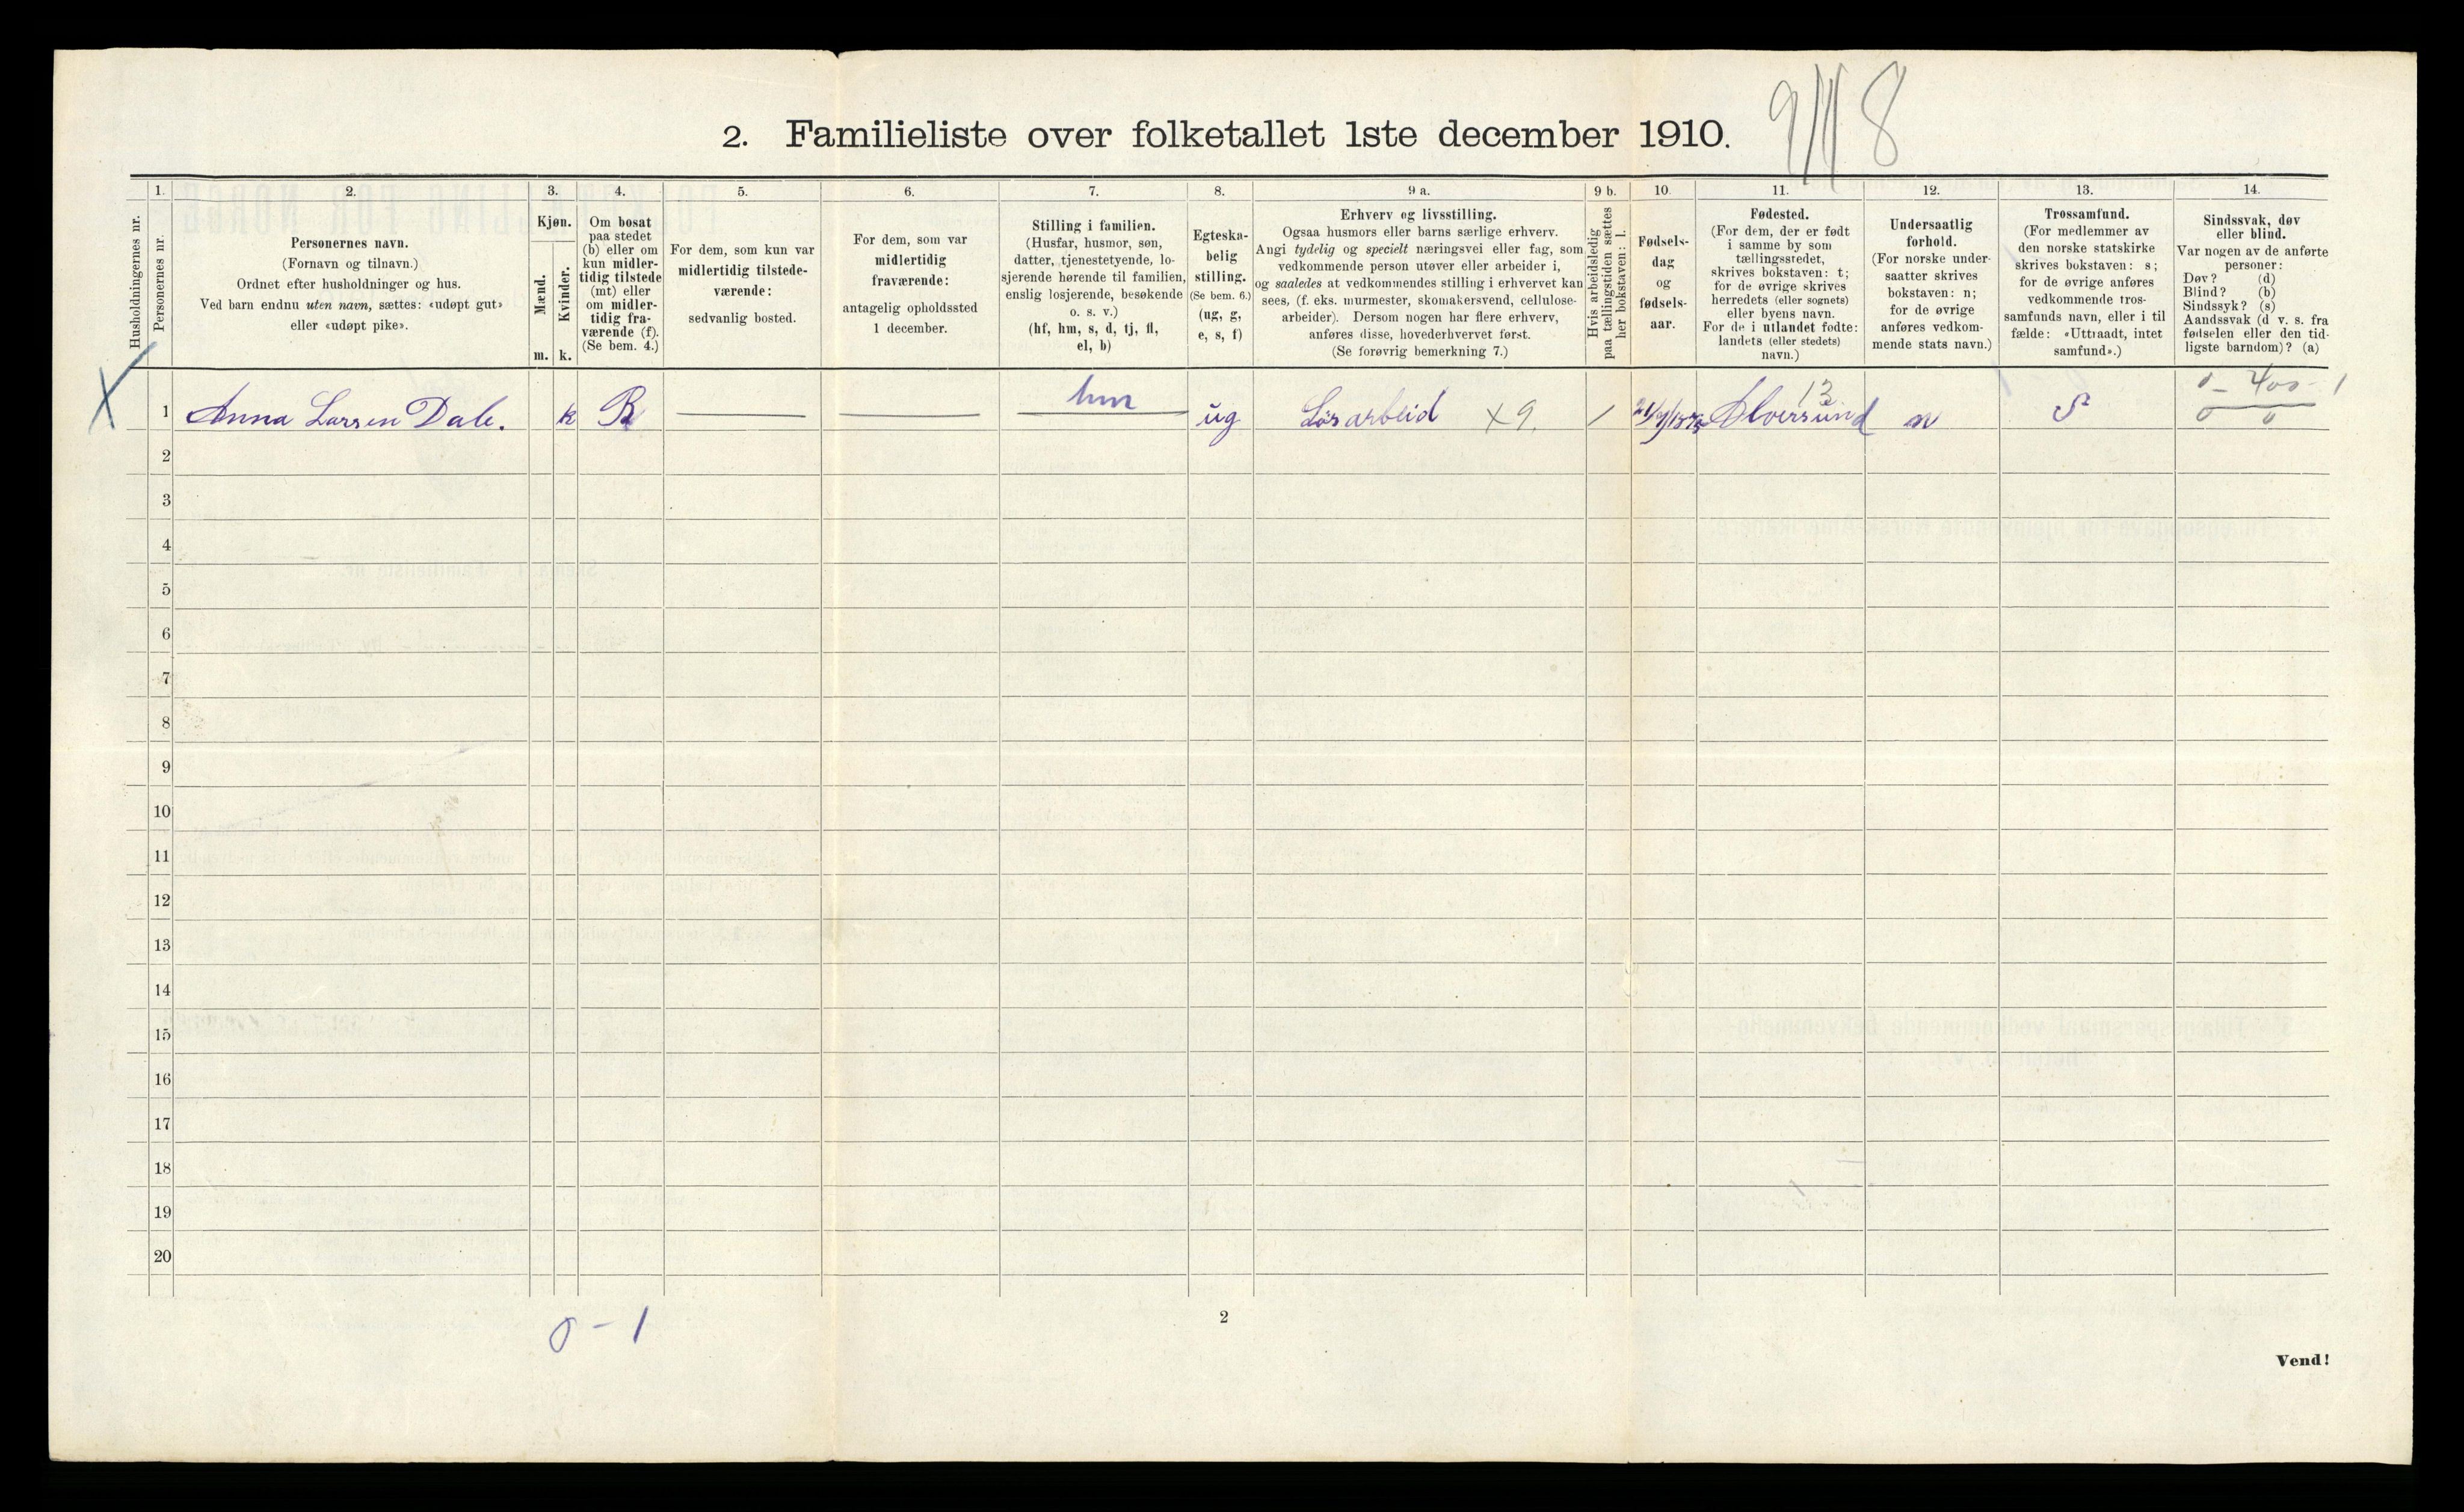 2. Familieliste over folketallet 1ste december 1910.
1. 2. 3. 4. 5. 6. 7. 8. 9 a. 9 b. 10. 11. 12. 13. 14.
Husholdningernes nr.
Personernes nr.
Personernes navn.
(Fornavn og tilnavn.)
Ordnet efter husholdninger og hus.
Ved barn endnu uten navn, sættes: «udøpt gut»
eller «udøpt pike».
Kjøn.
Mænd.
Kvinder.
m. k.
Om bosat
paa stedet
(b) eller om
kun midler-
tidig tilstede
(mt) eller
om midler-
tidig fra-
værende (f).
(Se bem. 4.)
For dem, som kun var
midlertidig tilstede-
værende:
sedvanlig bosted.
For dem, som var
midlertidig
fraværende:
antagelig opholdssted
1 december.
Stilling i familien.
(Husfar, husmor, søn,
datter, tjenestetyende, lo-
sjerende hørende til familien,
enslig losjerende, besøkende
o. s. v.)
(hf, hm, s, d, tj, fl,
el, b)
Egteska-
belig
stilling.
(Se bem. 6.)
(ug, g,
e, s, f)
Erhverv og livsstilling.
Ogsaa husmors eller barns særlige erhverv.
Angi tydelig og specielt næringsvei eller fag, som
vedkommende person utøver eller arbeider i,
og saaledes at vedkommendes stilling i erhvervet kan
sees, (f. eks. murmester, skomakersvend, cellulose-
arbeider). Dersom nogen har flere erhverv,
anføres disse, hovederhvervet først.
(Se forøvrig bemerkning 7.)
Hvis arbeidsledig
paa tællingstiden sættes
her bokstaven: l.
Fødsels-
dag
og
fødsels-
aar.
Fødested.
(For dem, der er født
i samme by som
tællingsstedet,
skrives bokstaven: t;
for de øvrige skrives
herredets (eller sognets)
eller byens navn.
For de i utlandet fødte:
landets (eller stedets)
navn.)
Undersaatlig
forhold.
(For norske under-
saatter skrives
bokstaven: n;
for de øvrige
anføres vedkom-
mende stats navn.)
Trossamfund.
(For medlemmer av
den norske statskirke
skrives bokstaven: s;
for de øvrige anføres
vedkommende tros-
samfunds navn, eller i til
fælde: «Uttraadt, intet
samfund».)
Sindssvak, døv
eller blind.
Var nogen av de anførte
personer:
Døv? (d)
Blind? (b)
Sindssyk? (s)
Aandssvak (d v. s. fra
fødselen eller den tid-
ligste barndom)? (a)
hm 13 0 - 400 - 1
X 1 Anna Larsen Dale. k B ug Løsarbeid X 9. Alversund n S 0 0
2
3
4
5
6
7
8
9
10
11
12
13
14
15
16
17
18
19
20
0 - 1
2
Vend!